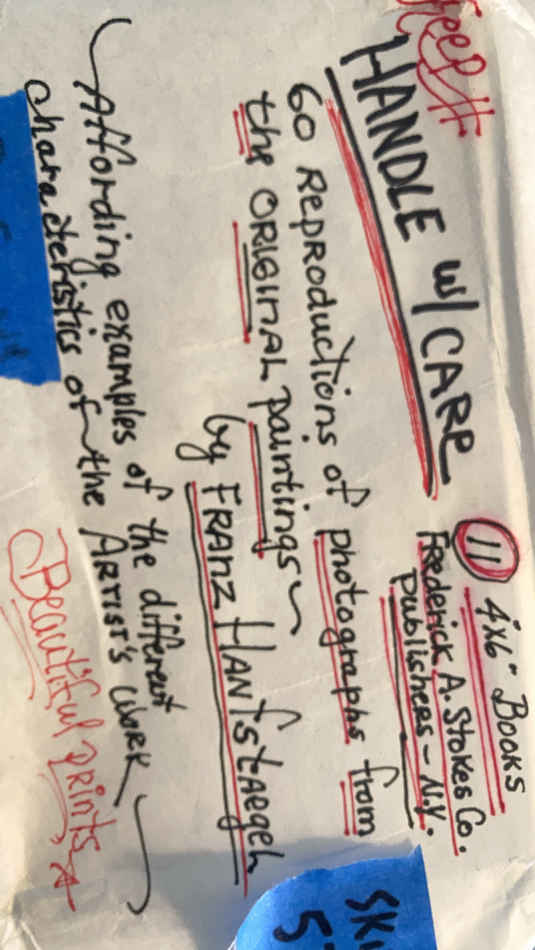 Keep!!
HANDLE W/ CARE
11 4x6" Books
Frederick A. Stokes Co.
Publishers - N.Y.
60 Reproductions of photographs from
the ORIGINAL paintings ~
by FRANZ HANfstaegeh
~ Affording examples of the different
characteristics of the ARTIST'S WORK ~
Beautiful prints
SK
5